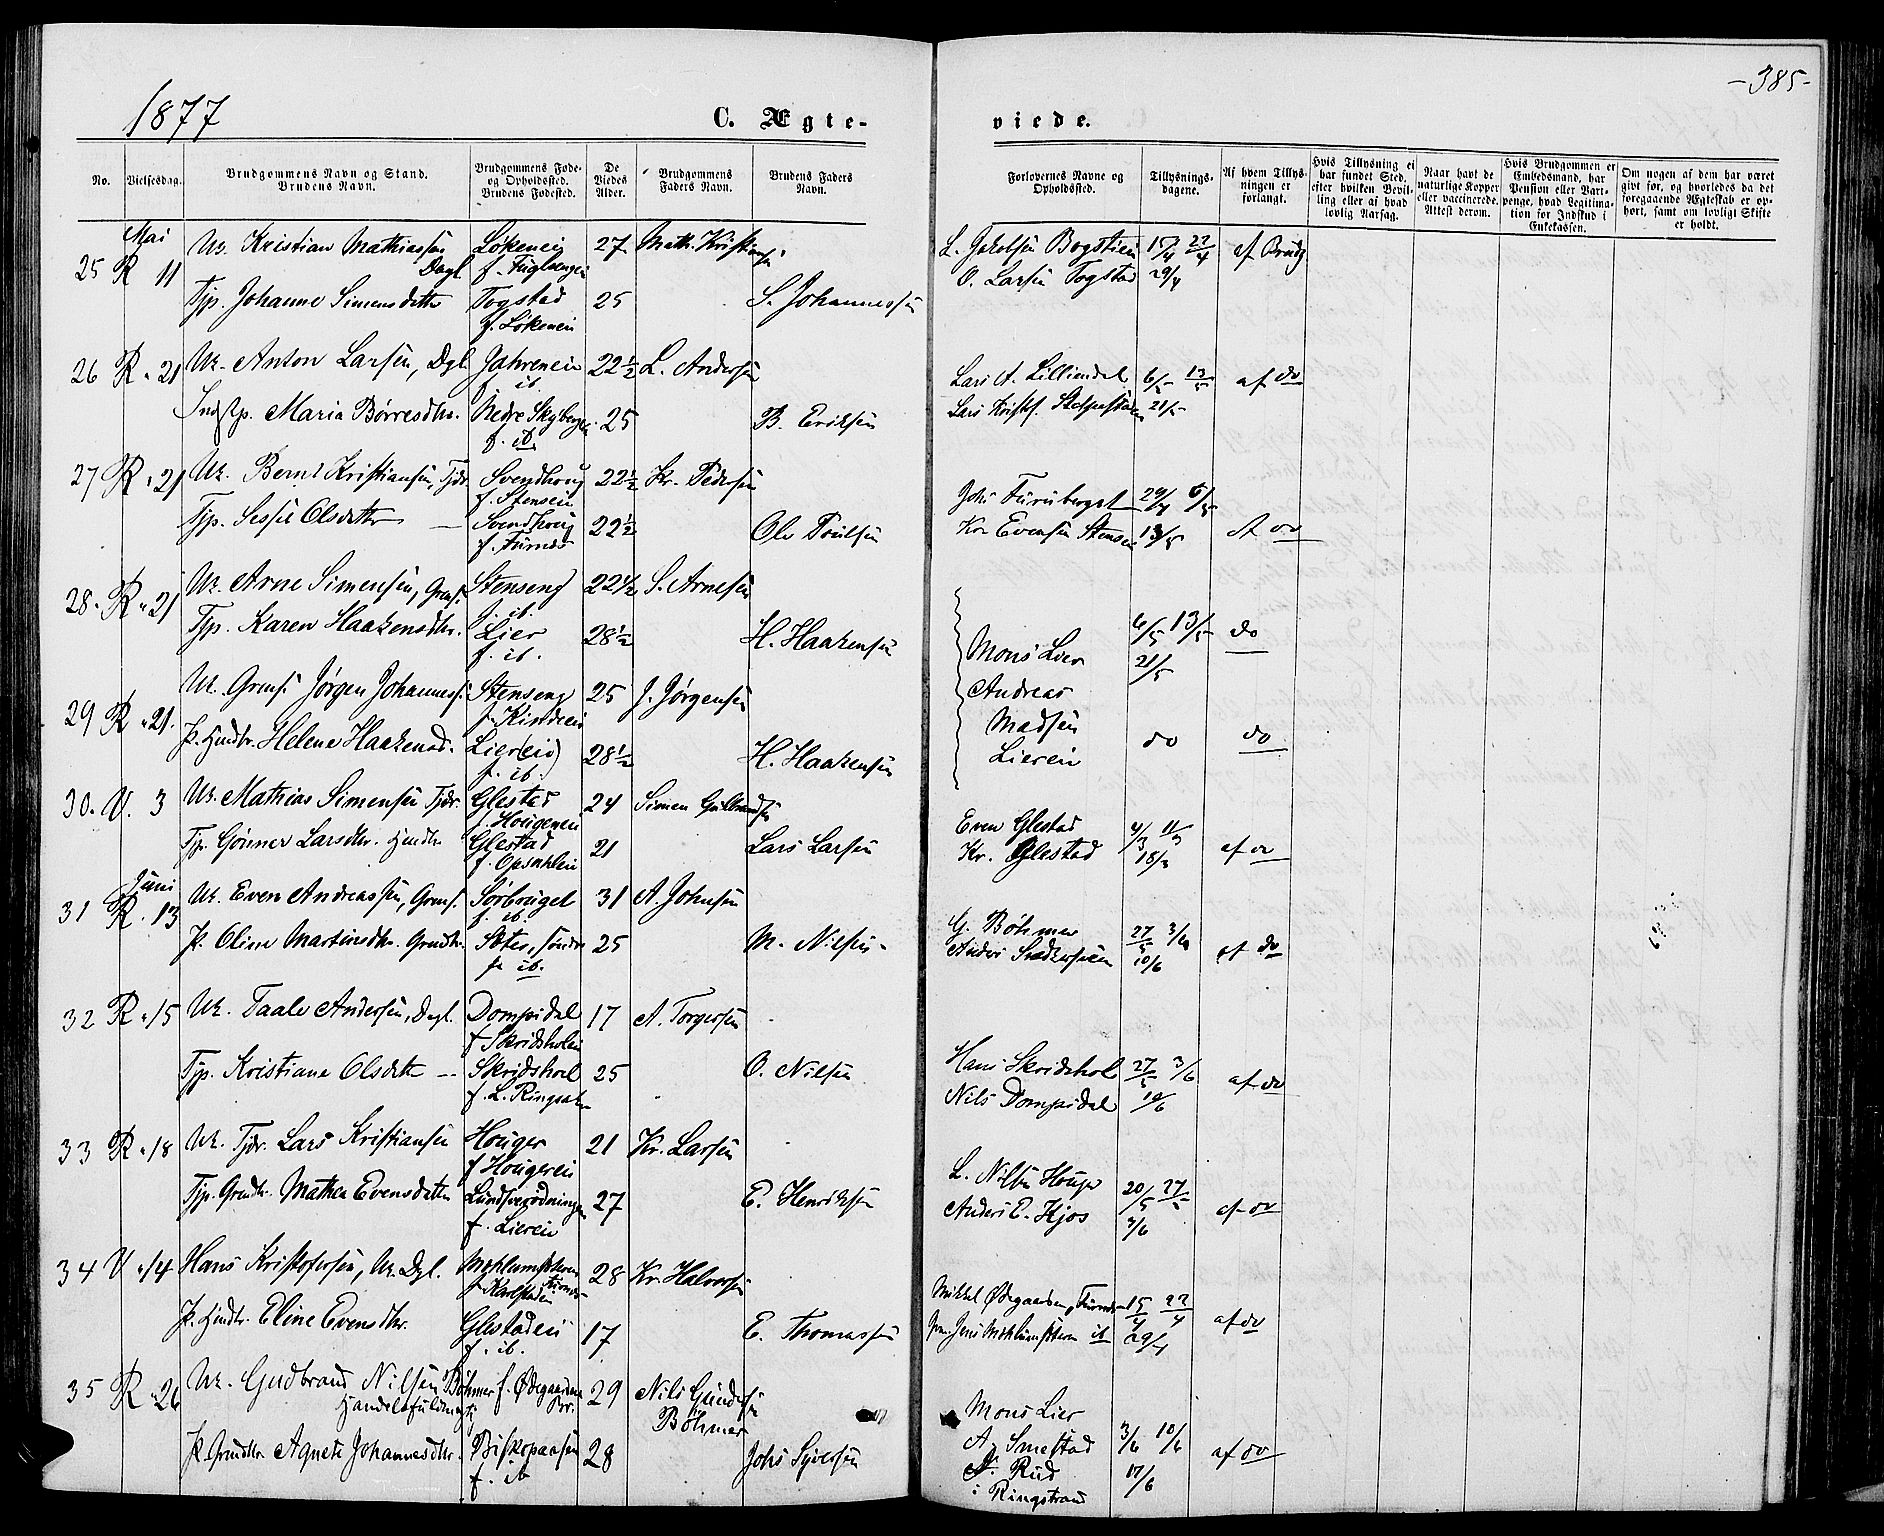 1877
C. Ægte-
viede.
-385-
No.
Vielsesdag.
Brudgommens Navn og Stand.
Brudens Navn.
Brudgommens Føde-
og Opholdssted.
Brudens Fødested.
De
Viedes
Alder.
Brudgommens
Faders Navn.
Brudens Faders
Navn.
Forlovernes Navne og
Opholdssted.
Tillysnings-
dagene.
Af hvem Tillys-
ningen er
forlangt.
Hvis Tillysning ei
har fundet Sted,
efter hvilken Bevil-
ling eller af hvad
lovlig Aarsag.
Naar havt de
naturlige Kopper
eller vaccinerede.
Attest derom.
Hvis Brudgommen er
Embedsmand, har
Pension eller Vart-
penge, hvad Legitima-
tion for Indskud i
Enkekassen.
Om nogen af dem har været
givt før, og hvorledes da det
foregaaende Ægteskab er op-
hørt, samt om lovligt Skifte
er holdt.
Mai
25 R 11 Uk. Kristian Mathiassen Løkeneie 27 Math. Kristiansen L. Jakobsen Bogstien 15/4 22/4 af Brudg
Dagl. f. Fuglsengen O. Larsen Togstad 29/4
Pp. Johanne Simensdatter Togstad 25 S. Johannessen
f. Løkeneie
26 R. 21 Uk. Anton Larsen, Dgl. Jahreneie 22½ L. Andersen Lars A. Lilliendal 6/5 13/5 af do
ib. Lars Kristf. 21/5
Maria Børresdtr. Nedre Skyberg 25 B. Eriksen
f. ib
27 R. 21 Uk. Bernt Kristiansen, Tjdr. Svendhoug 22½ Kr. Pedersen
f. Stenseie Johs Furuberget 29/4 6/5
Pp. Sessil Olsdatter — Svendhoug 22½ Ole Poulsen Kr. Evensen Stenseie 13/5 af do
f. Furnes
28. R. 21 Uk. Arne Simensen, Gmf. Stenseng 22½ S. Arnesen
f. ib.
Pp. Karen Haakensdtr. Lier 28½ H. Haakensen Mons Lier 6/5 13/5 do
f. ib. 21/5
29 R. 21. U. Gmf. Jørgen Johanness. Stenseng 25 J. Jørgensen Andreas
f. Kindeie Madsen
P. Helene Haakensd. Lier(eie) 28½ H. Haakensen Liereie do do
f. ib.
30. V. 3 Uk. Mathias Simensen Tjdr. Glestad 24 Simen Gulbrandsen Even Glestad 4/3 11/3
f. Hougeneie
Pp. Gunner Larsdtr. Glestad 21 Lars Larsen Kr. Glestad 18/3 af do
f. Opsahleie
Juni
31 R. 13 Uk. Even Andreassen, Gmf. Sørbrugel 31 A. Johnsen G. Böhmer 27/5 3/6
f. ib.
P. Oline Martinsdtr. Gmdtr. Stee, søndre 25 M. Nilsen Anders 10/6 af do
f. ib.
32 R. 15 Uk. Taale Andersen, Dagl. Dompidal 17 A. Torgersen
f. Skridsholeie
Pp. Kristiane Olsdatter — Skridshol 25 O. Nilsen Hans Skridshol 27/5 3/6 af do
f. L. Ringsaker Nils Dompidal 10/6
33 R. 18 Uk. Tjdr. Lars Kristiansen Houger 21 Kr. Larsen
f. Hougereie L. Nilsen Houger 20/5 27/5
Pp. Gmdtr. Mathea Evensdatter 27 E. Henriksen Anders E. Kjos 3/6 af do
f. Liereie
34 V. 14 Hans Kristofersen, Uk. Dgl. 28 Kr. Halvorsen Mikkel Ødegaarden, Furnes 15/4 22/4
f. Karlstaden
P. Eline Evensdtr. Glestadeie 17 E. Thomassen Jens ib 29/4 af do
f. ib.
35 R. 26 Uk. Gudbrand Nilsen Böhmer f. Ødegaarden 29 Nils Gundersen Mons Lier
Handelsfuldmægtig Böhmer
P. Gmdtr. Agnete Johannesdtr. Biskopaasen 28 Johs Syversen A. Smestad 3/6 10/6 af do
f. ib Rud 17/6
i Ringstrand